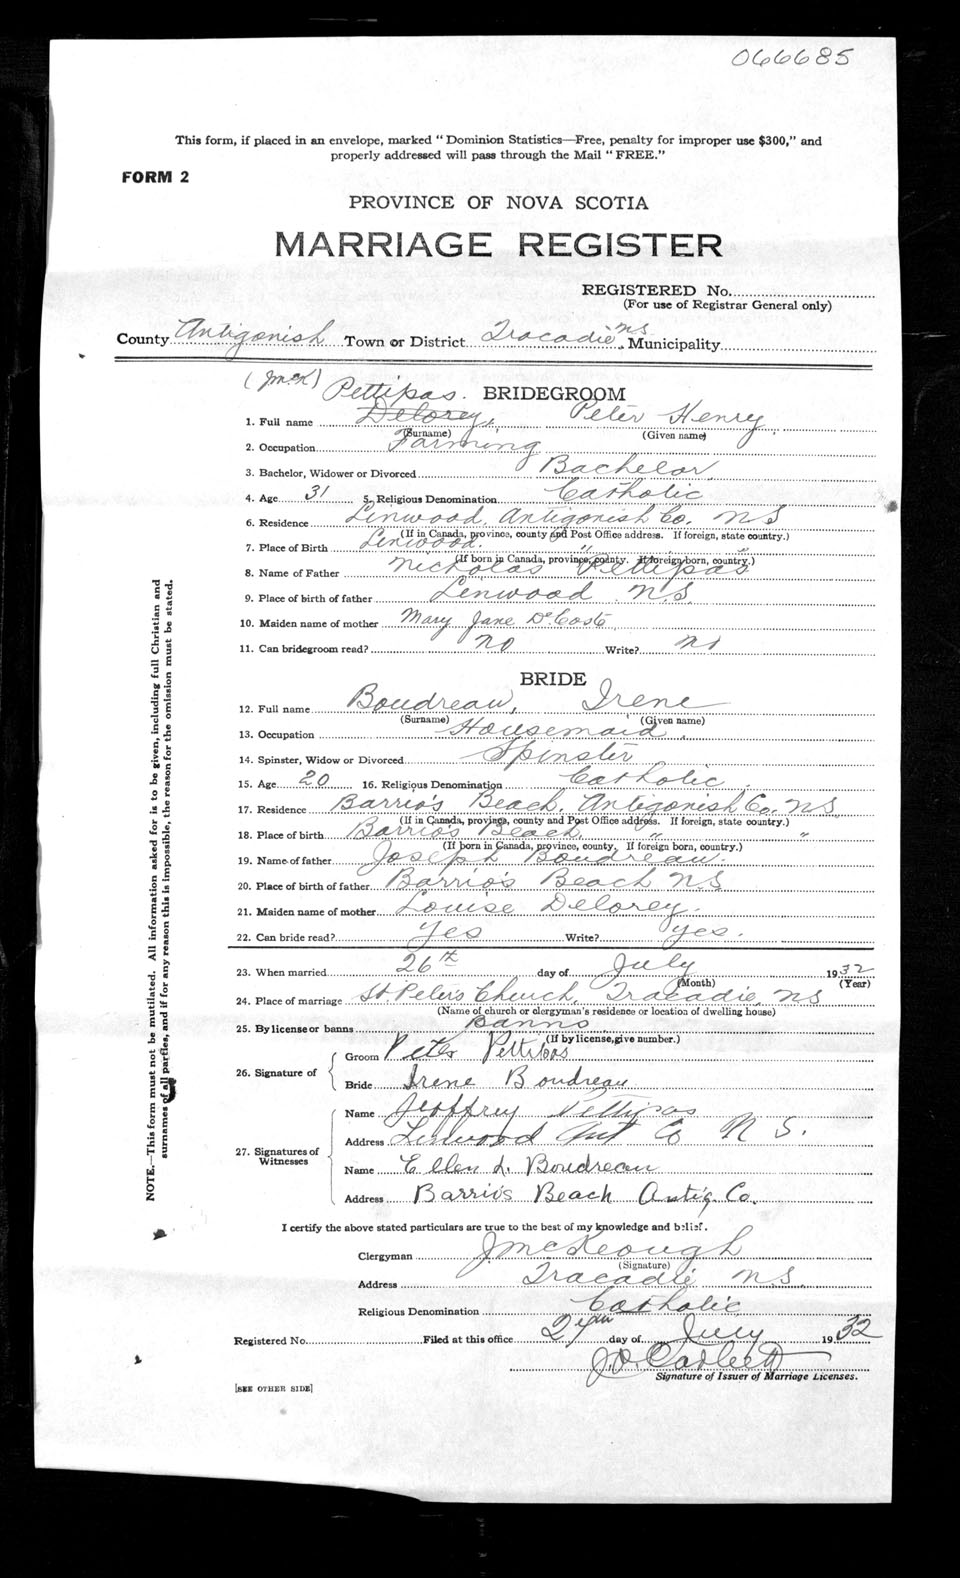 066685
This form, if placed in an envelope, marked "Dominion Statistics—Free, penalty for improper use $300," and
properly addressed will pass through the Mail "FREE."
FORM 2
PROVINCE OF NOVA SCOTIA
MARRIAGE REGISTER
REGISTERED No.
(For use of Registrar General only)
County Antigonish Town or District Tracadie N.S. Municipality
(JMcK) Pettipas. BRIDEGROOM
1. Full name Delorey, Peter Henry
(Surname) (Given name)
2. Occupation Farming
3. Bachelor, Widower or Divorced Bachelor
4. Age 31 5. Religious Denomination Catholic
6. Residence Linwood, Antigonish Co. N S
(If in Canada, province, county and Post Office address. If foreign, state country.)
7. Place of Birth Linwood. " "
(If born in Canada, province, county. If foreign born, country.)
8. Name of Father Nicholas Pettipas
9. Place of birth of father Linwood N.S.
10. Maiden name of mother Mary Jane DeCoste
11. Can bridegroom read? no Write? no
BRIDE
12. Full name Boudreau, Irene
(Surname) (Given name)
13. Occupation Housemaid
14. Spinster, Widow or Divorced Spinster
15. Age 20 16. Religious Denomination Catholic
17. Residence Barrio's Beach, Antigonish Co. N S
(If in Canada, province, county and Post Office address. If foreign, state country.)
18. Place of birth Barrio's Beach, " "
(If born in Canada, province, county, If foreign born, country.)
19. Name of father Joseph Boudreau.
20. Place of birth of father Barrio's Beach N.S
21. Maiden name of mother Louise Delorey.
22. Can bride read? Yes Write? Yes.
23. When married 26th day of July 1932
(Month) (Year)
24. Place of marriage St. Peter's Church, Tracadie, N S
(Name of church or clergyman's residence or location of dwelling house)
25. By license or banns Banns
(If by license, give number.)
26. Signature of
Groom Peter Pettipas
Bride Irene Boudreau
27. Signatures of Witnesses
Name Jeoffrey Pettipas
Address Linwood Ant Co N S.
Name Ellen L. Boudreau
Address Barrio's Beach Antig. Co.
I certify the above stated particulars are true to the best of my knowledge and belief.
Clergyman J. McKeough
(Signature)
Address Tracadie N.S.
Religious Denomination Catholic
Registered No. Filed at this office day of July 1932
Signature of Issuer of Marriage Licenses.
[SEE OTHER SIDE]
NOTE.—This form must not be mutilated. All information asked for is to be given, including full Christian and
surnames of all parties, and if for any reason this is impossible, the reason for the omission must be stated.